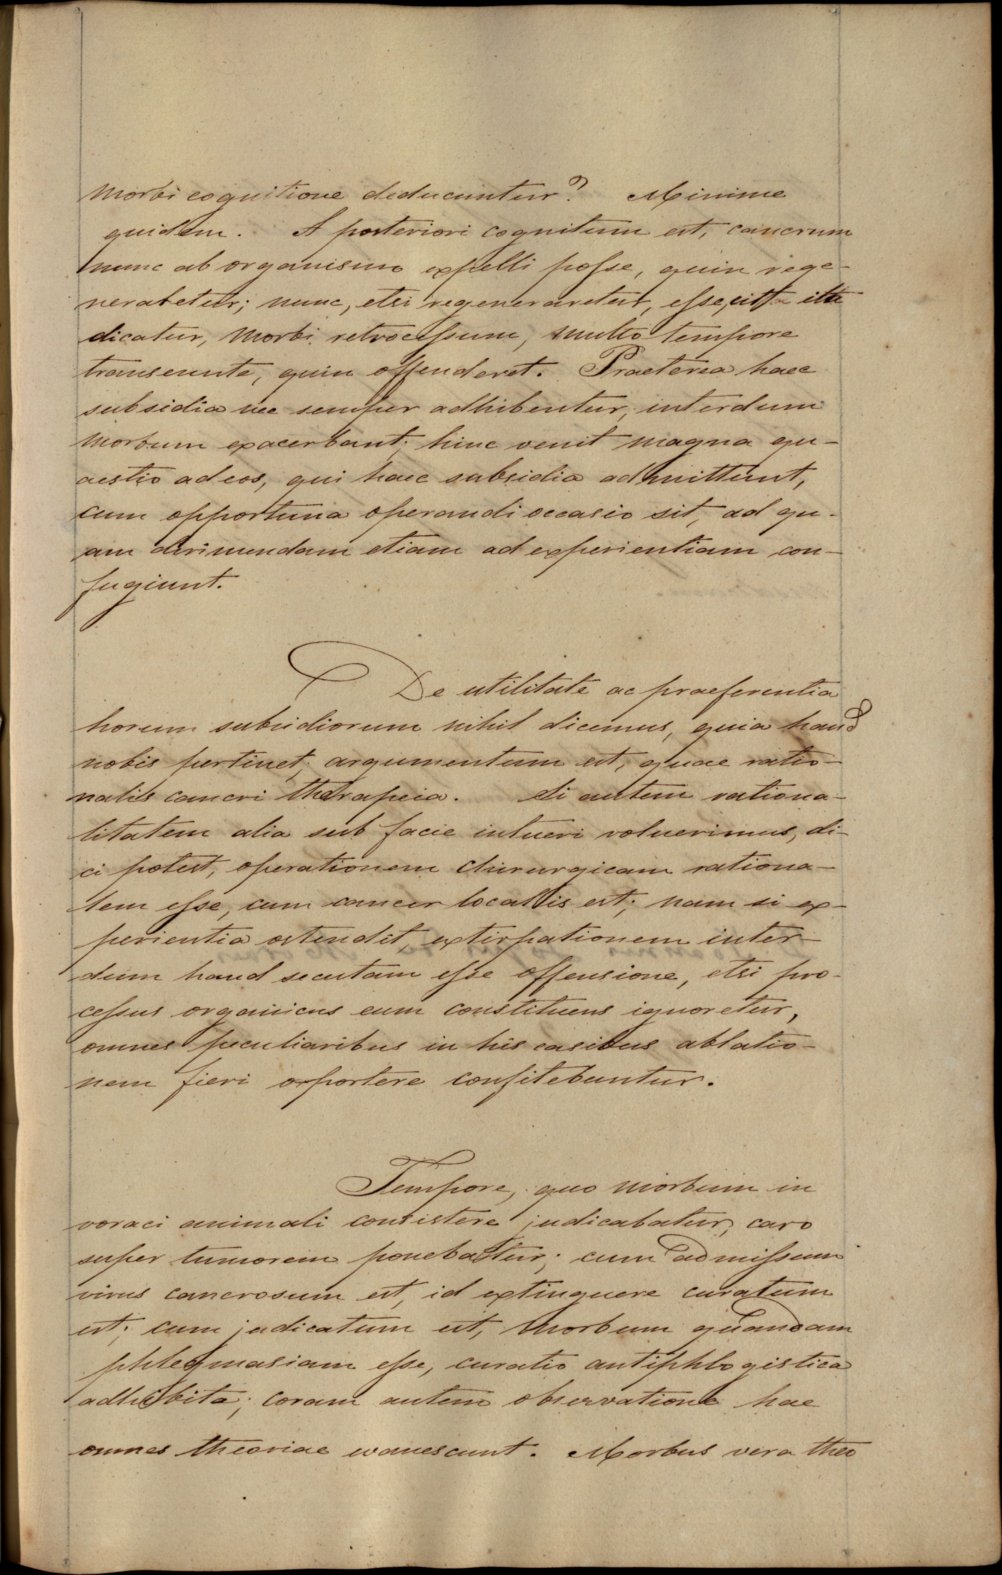 morbi cognitione deducuntur? Minime
quidem. A posteriori cognitum est, cancrum
nunc ab organismo expelli posse, quin rege-
nerabetur; nunc, etsi regeneraretur, esse,
dicatur, morbi retrocessum, multo tempore
transeunte, quin offenderet. Praeterea haec
subsidia nec semper adhibentur, interdum
morbum exacerbant; hinc venit magna qu-
aestio ad eos, qui haec subsidia admittunt,
cum opportuna operandi occasio sit, ad qu-
am dirimendam etiam ad experientiam con-
fugiunt.
De utilitate ac praeferentia
horum subsidiorum nihil dicemus, quia haud
nobis pertinet; argumentum est, quae ratio-
nalis cancri therapeia. Si autem rationa-
litatem alia sub facie intueri voluerimus, di-
ci potest, operationem chirurgicam rationa-
lem esse, cum cancer locallis est; nam si ex-
perientia ostendit extirpationem inter-
dum haud secutam esse offensione, etsi pro-
cessus organicus eum constituens ignoretur,
omnes peculiaribus in his casibus ablatio-
nem fieri oportere confitebuntur.
Tempore, quo morbum in
voraci animali consistere judicabatur, caro
super tumorem ponebatur; cum admissum
virus cancrosum est, id extinguere curatum
est; cum judicatum est, morbum quandam
phlegmasiam esse, curatio antiphlogistica
adhibita; coram autem observatione hac
omnes theoriae evanescunt. Morbus vera theo